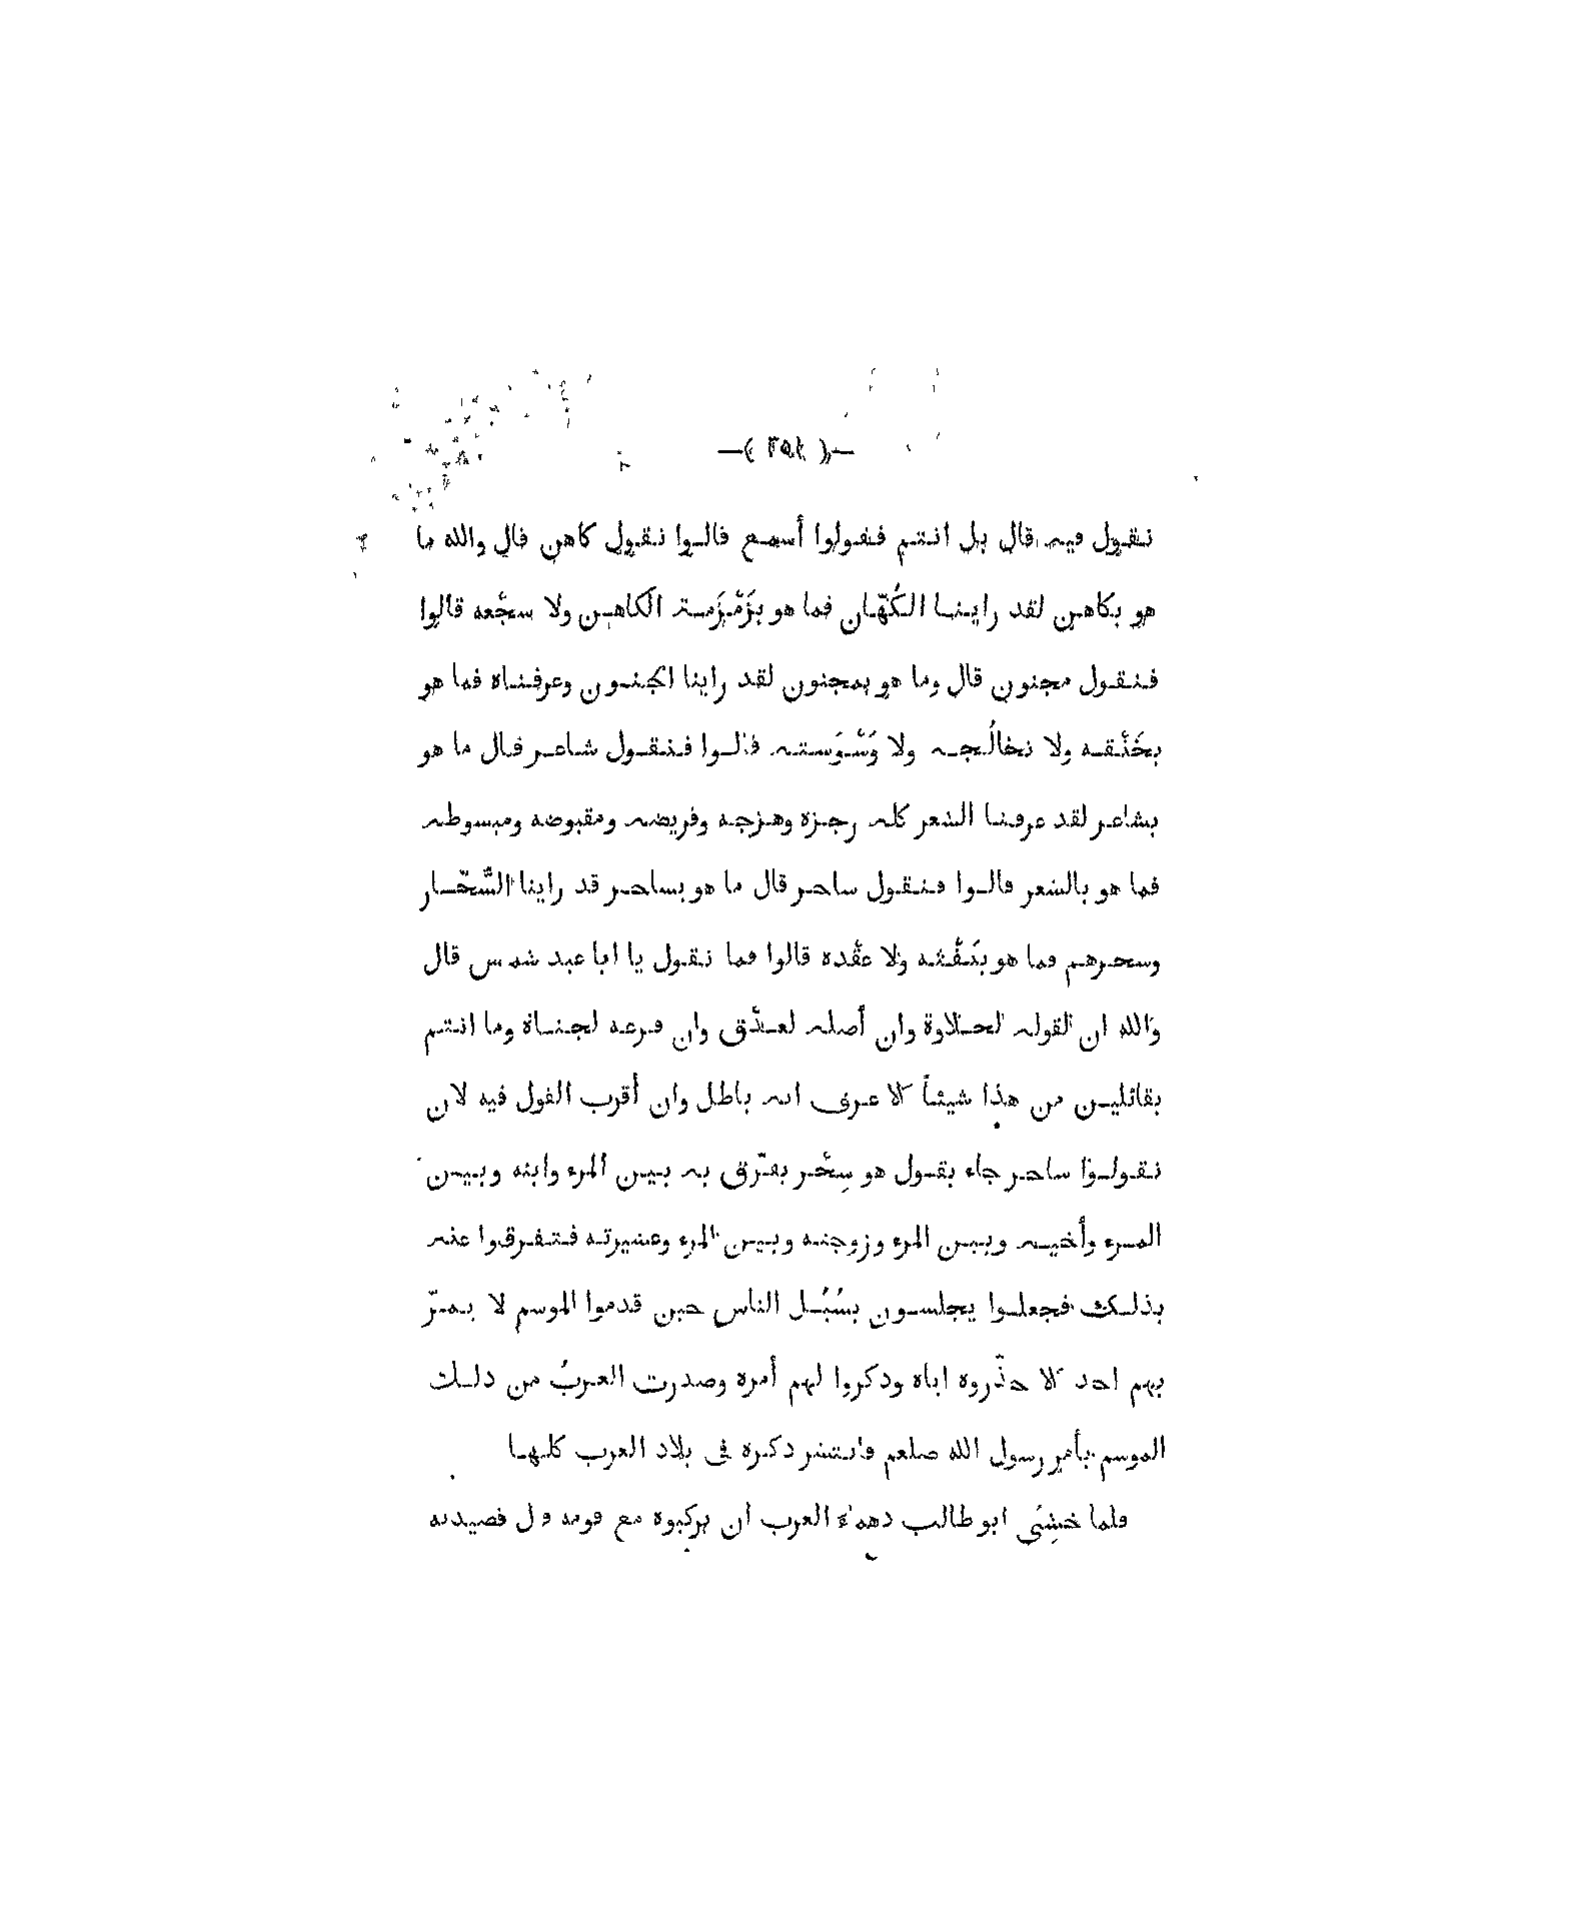 —( ٢٥١ )—
نقول فيه قال بل انتم فقولوا أسمع قالوا نقول كاهن قال والله ما
هو بكاهن لقد راينا الكُهّان فما هو بزَمْزَمة الكاهن ولا سجْعه قالوا
فنقول مجنون قال وما هو بمجنون لقد راينا الجنون وعرفناه فما هو
بخَنْقه ولا تخالُجه ولا وَسْوَسته قالوا فنقول شاعر قال ما هو
بشاعر لقد عرفنا الشعر كله رجزه وهزجه وقريضه ومقبوضه ومبسوطه
فما هو بالشعر قالوا فنقول ساحر قال ما هو بساحر قد راينا السُّحّار
وسحرهم فما هو بنَفْثه ولا عقْده قالوا فما نقول يا ابا عبد شمس قال
والله ان لقوله لحلاوة وان أصله لعذْق وان فرعه لجناة وما انتم
بقائلين من هذا شيئاً الا عرف انه باطل وان أقرب القول فيه لان
تقولوا ساحر جاء بقول هو سِحْر يفرّق به بين المرء وابنه وبين
المرء وأخيه وبين المرء وزوجته وبين المرء وعشيرته فتفرقوا عنه
بذلك فجعلوا يجلسون بسُبُل الناس حين قدموا الموسم لا يمرّ
بهم احد الا حذّروه اياه وذكروا لهم أمره وصدرت العربُ من ذلك
الموسم بأمر رسول الله صلعم فانتشر ذكره فى بلاد العرب كلها
فلما خشِىَ ابو طالب دهماء العرب ان يركبوه مع قومه قال قصيدته